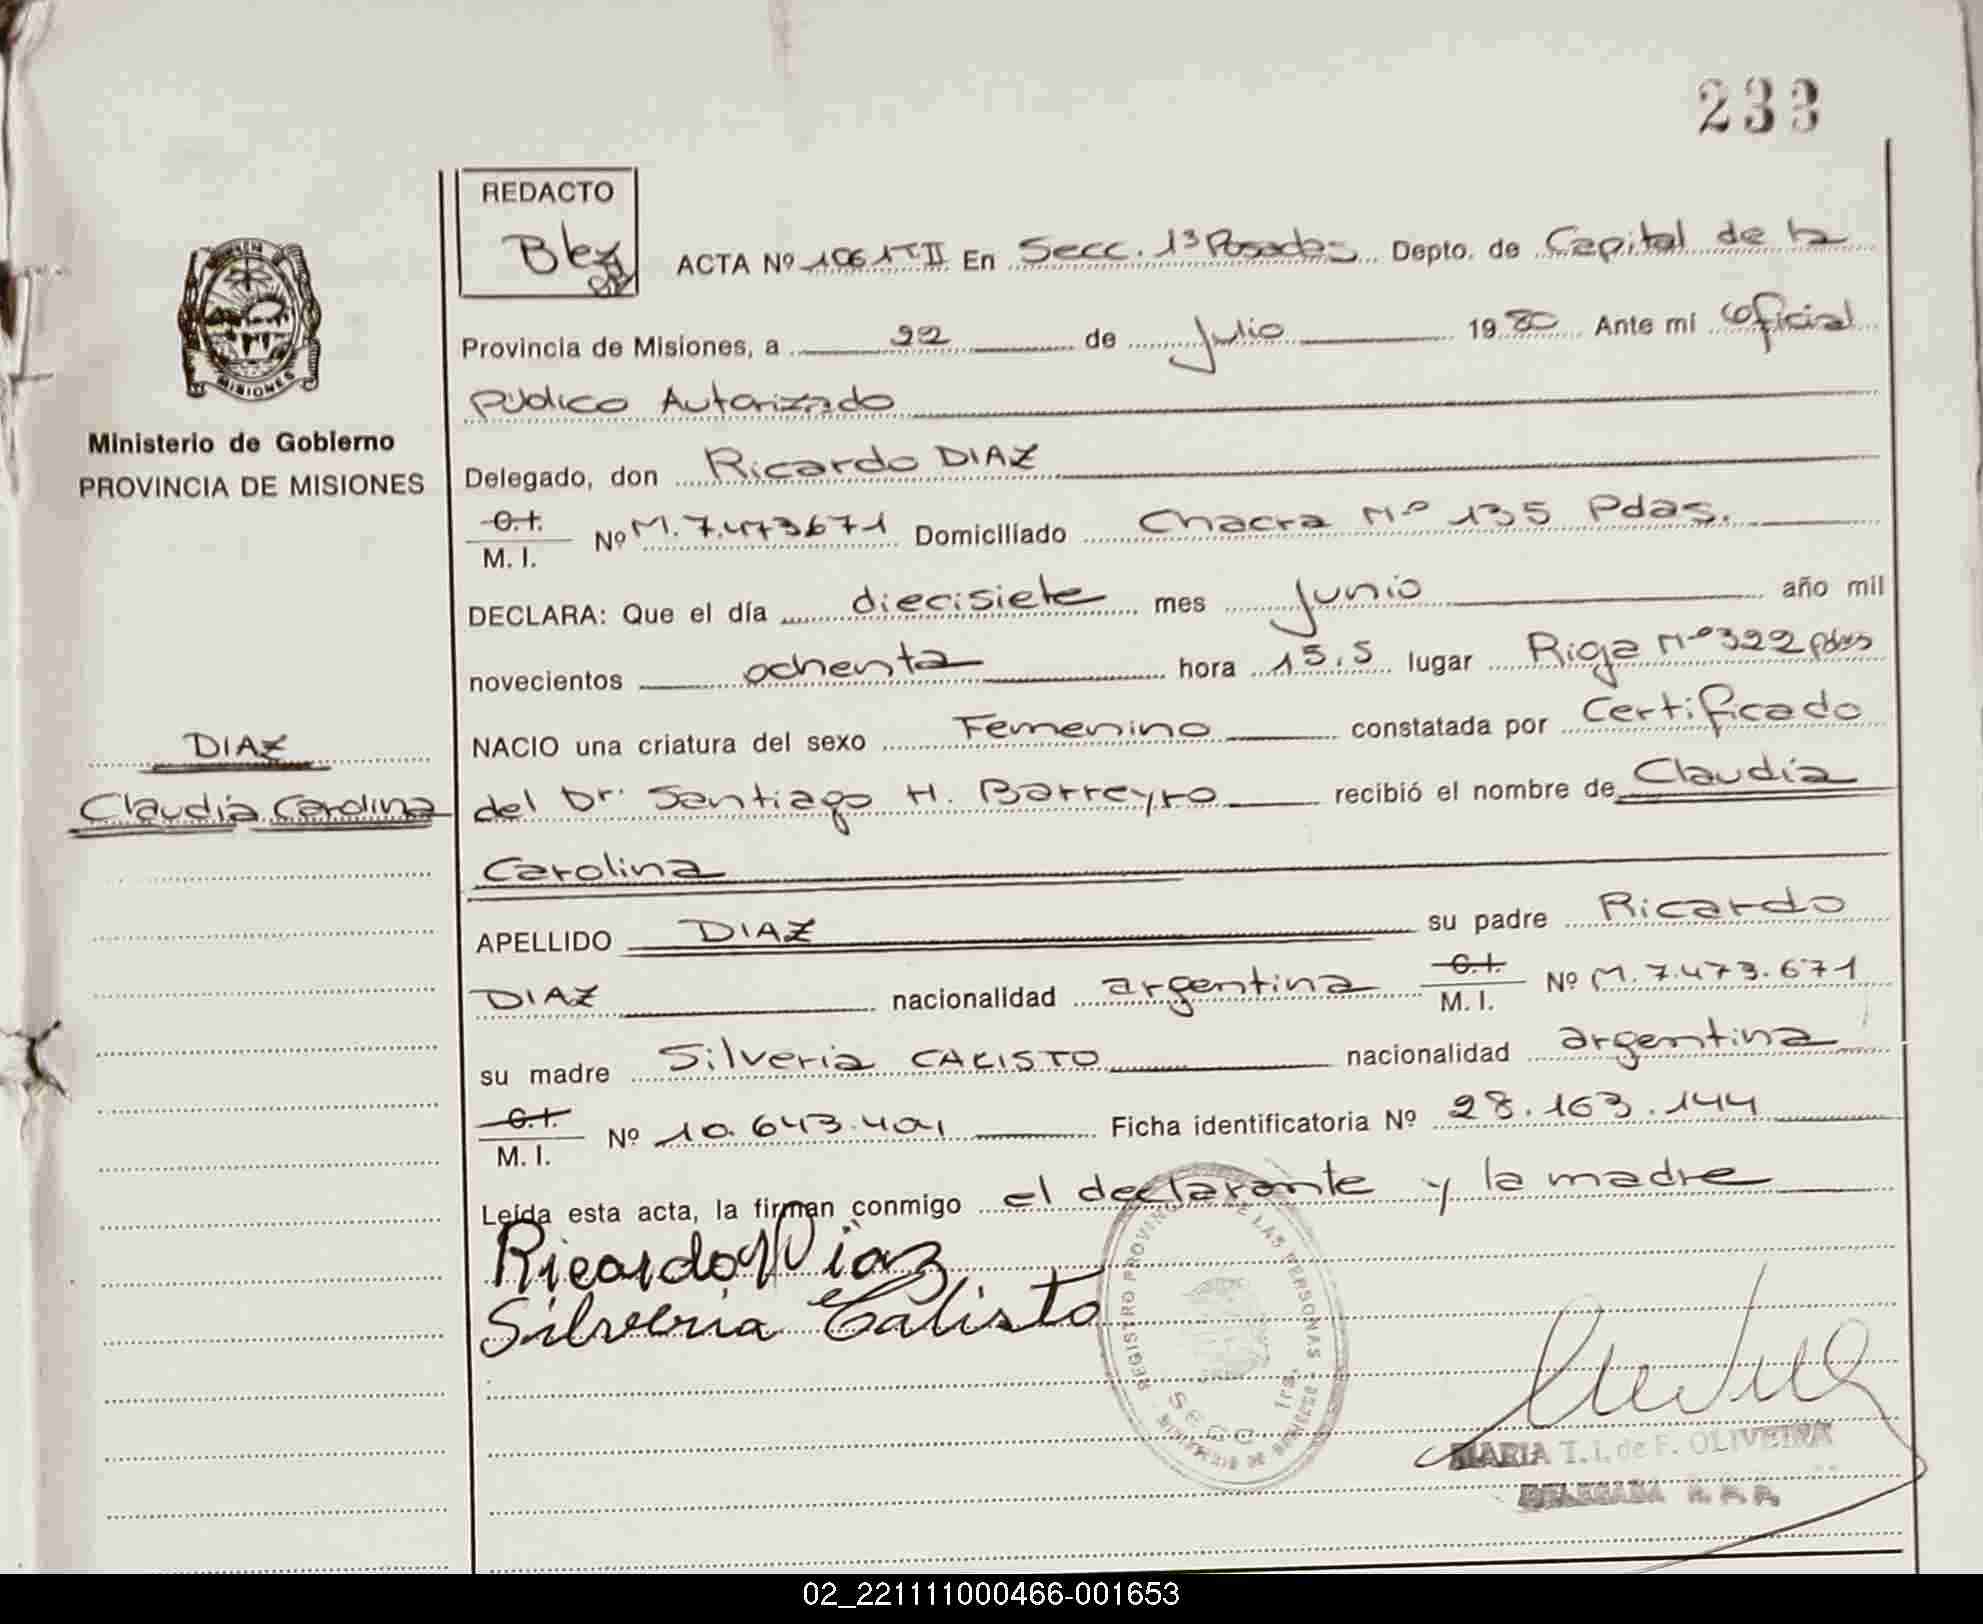 233
REDACTO
Blez
ACTA Nº 1061 T II En Secc. 1ª Posadas Depto. de Capital de la
Provincia de Misiones, a 22 de Julio 1980 Ante mí Oficial
Público Autorizado
Delegado, don Ricardo DIAZ
C.I. M.I. Nº M. 7.473671 Domiciliado Chacra Nº 135 Pdas.
DECLARA: Que el día diecisiete mes Junio año mil
novecientos ochenta hora 15,5 lugar Rioja Nº 322 Pdas
NACIO una criatura del sexo Femenino constatada por Certificado
del Dr. Santiago H. Barreyro recibió el nombre de Claudia
Carolina
APELLIDO DIAZ su padre Ricardo
DIAZ nacionalidad argentina C.I. M.I. Nº M. 7.473.671
su madre Silveria CALISTO nacionalidad argentina
C.I. M.I. Nº 10.643.401 Ficha identificatoria Nº 28.163.144
Leída esta acta, la firman conmigo el declarante y la madre
Ricardo Diaz
Silveria Calisto
MISIONES
Ministerio de Gobierno
PROVINCIA DE MISIONES
DIAZ
Claudia Carolina
REGISTRO PROVINCIAL DE LAS PERSONAS
SECC 1ra.
MARIA T. I. de F. OLIVEIRA
DELEGADA R. P. P.
02_221111000466-001653